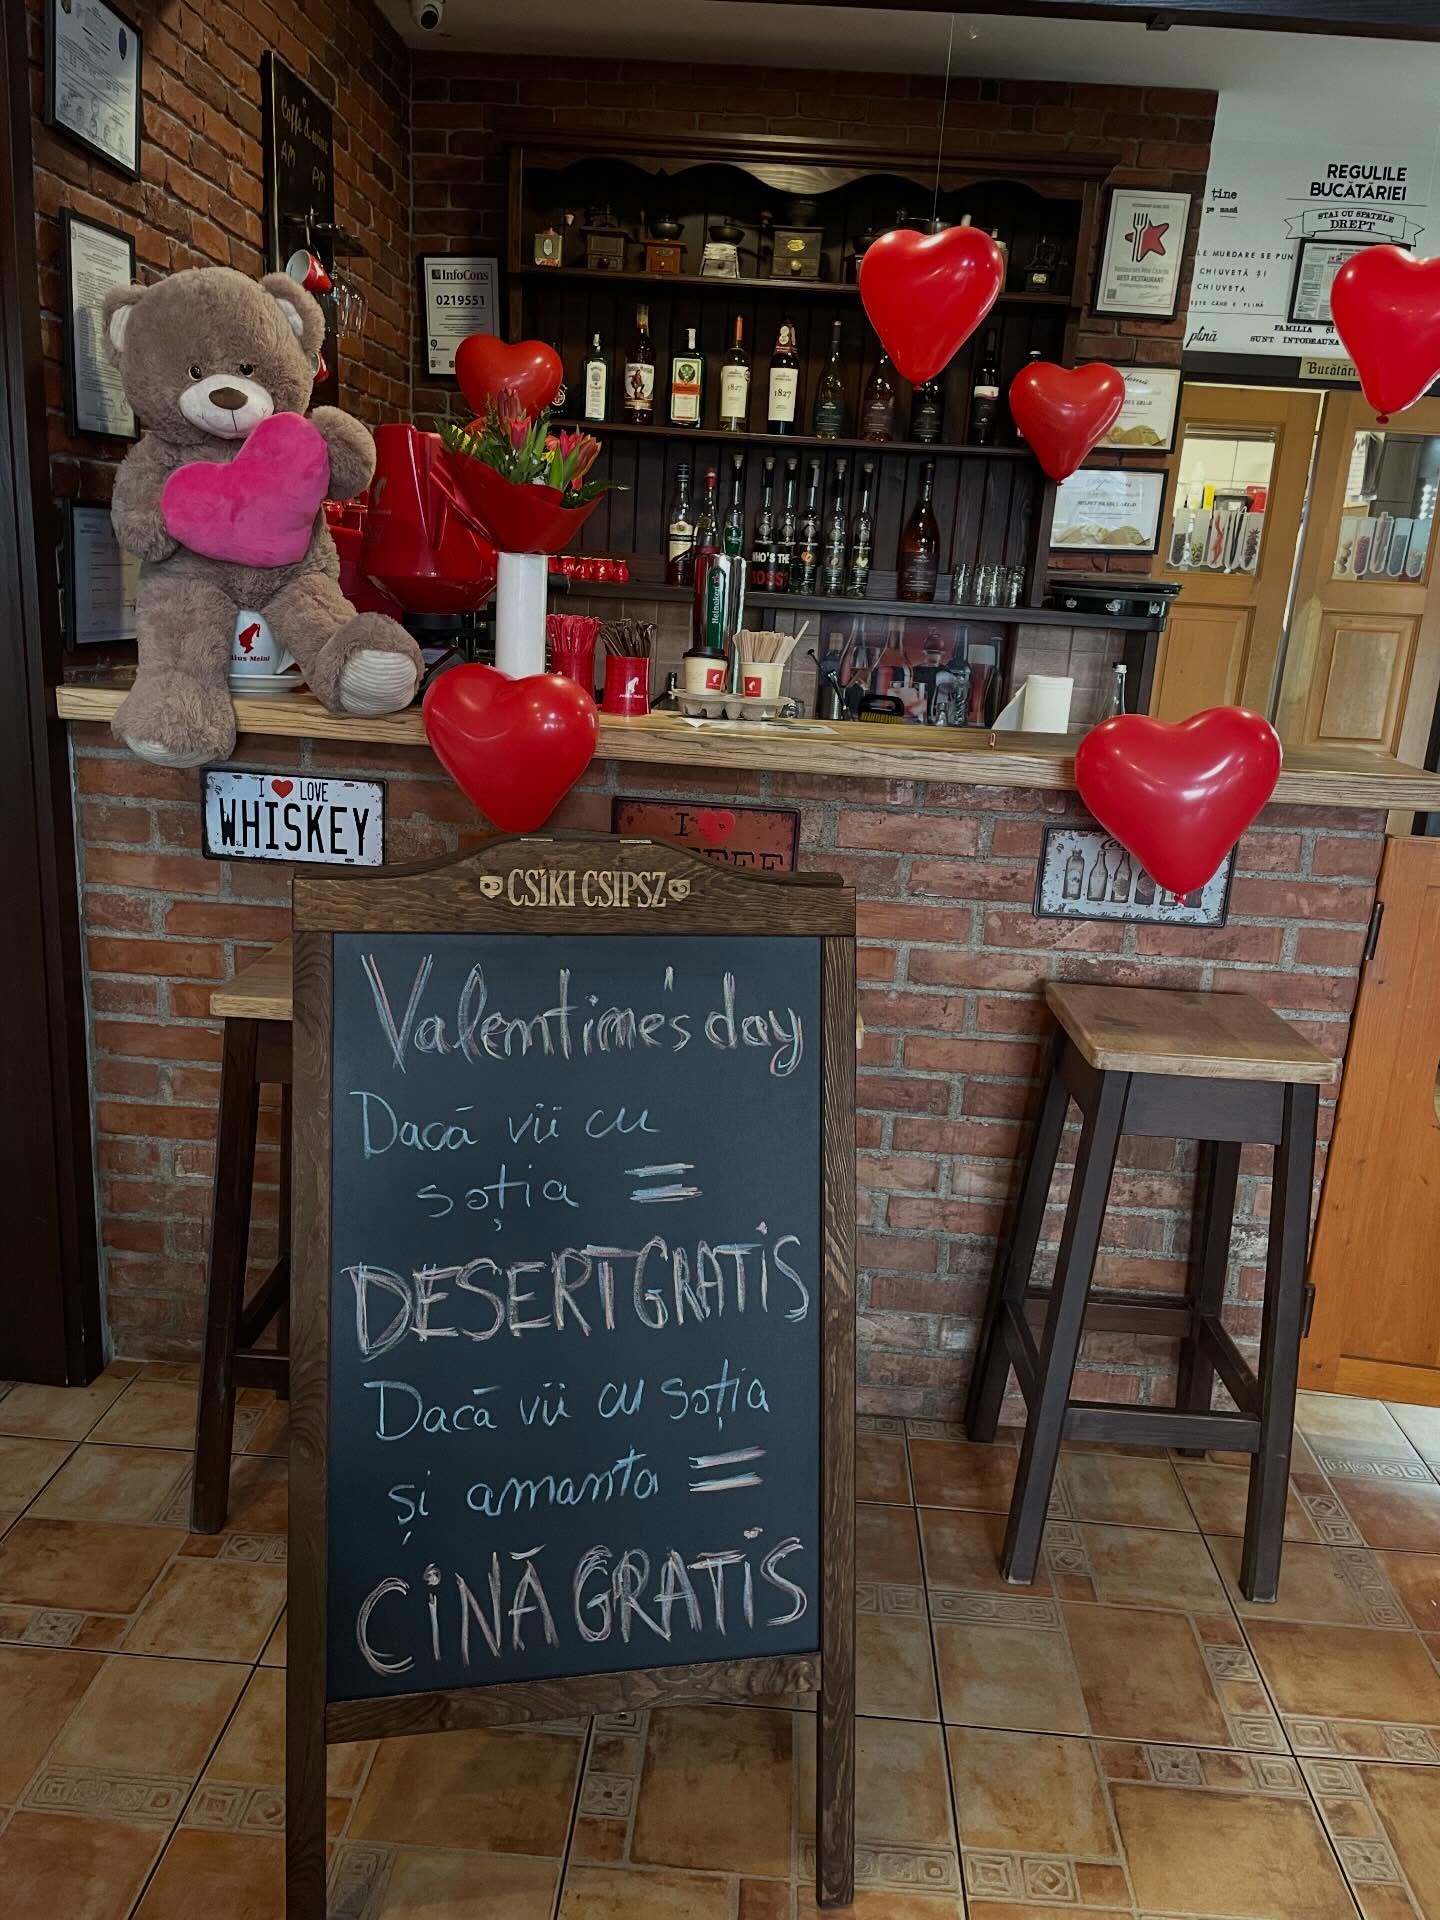 Coffe & wine
AM
PM
InfoCons
0219551
REGULILE
BUCĂTĂRIEI
ține
pe masă
STAI CU SPATELE
DREPT
LE MURDARE SE PUN
CHIUVETĂ ȘI
CHIUVETA
EȘTE CÂND E PLINĂ
plină
FAMILIA ȘI
SUNT ÎNTODEAUNA
BEST RESTAURANT
1827
1827
WHO'S THE
BOSS?
Heineken
Julius Meinl
I LOVE
WHISKEY
I
CSÍKI CSIPSZ
Valentine's day
Dacă vii cu
soția =
DESERT GRATIS
Dacă vii cu soția
și amanta =
CINĂ GRATIS